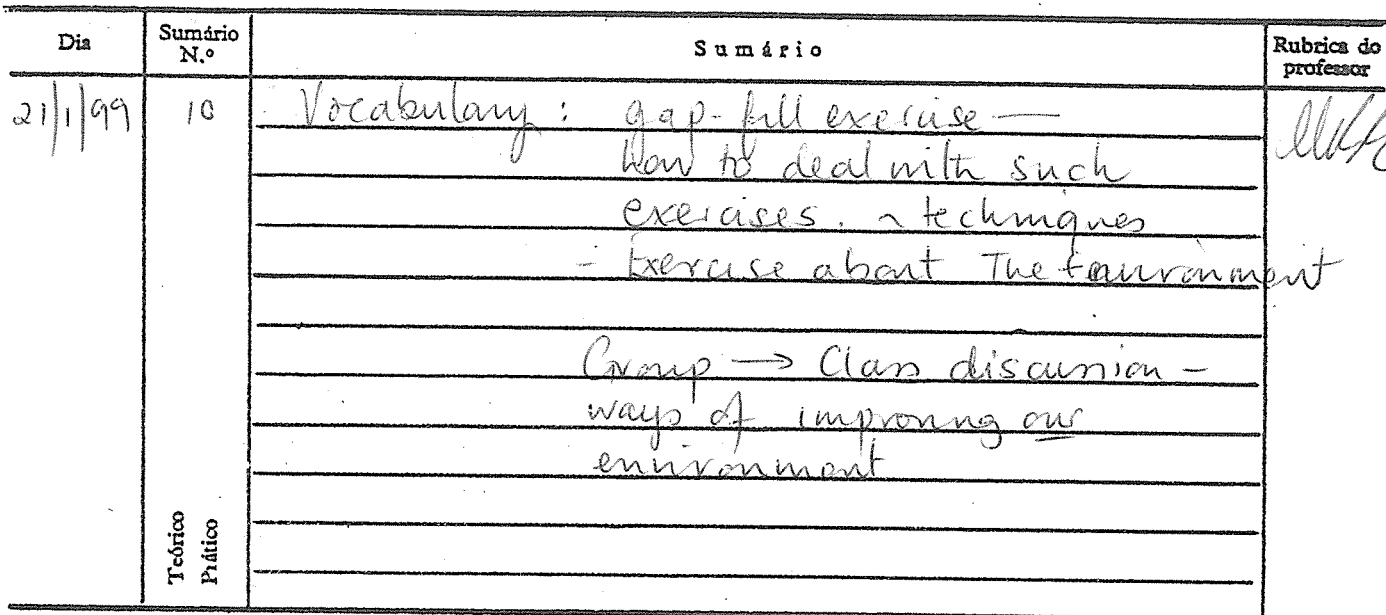 Dia Sumário N.º Sumário Rubrica do professor
21/1/99 10 Vocabulary: gap-fill exercise —
how to deal with such
exercises. ~ techniques
- Exercise about The Environment
Group → Class discussion -
ways of improving our
environment
Teórico
Prático